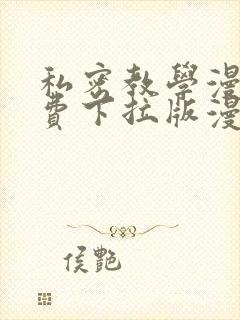 私密教學漫
費下拉版漫
侯艷